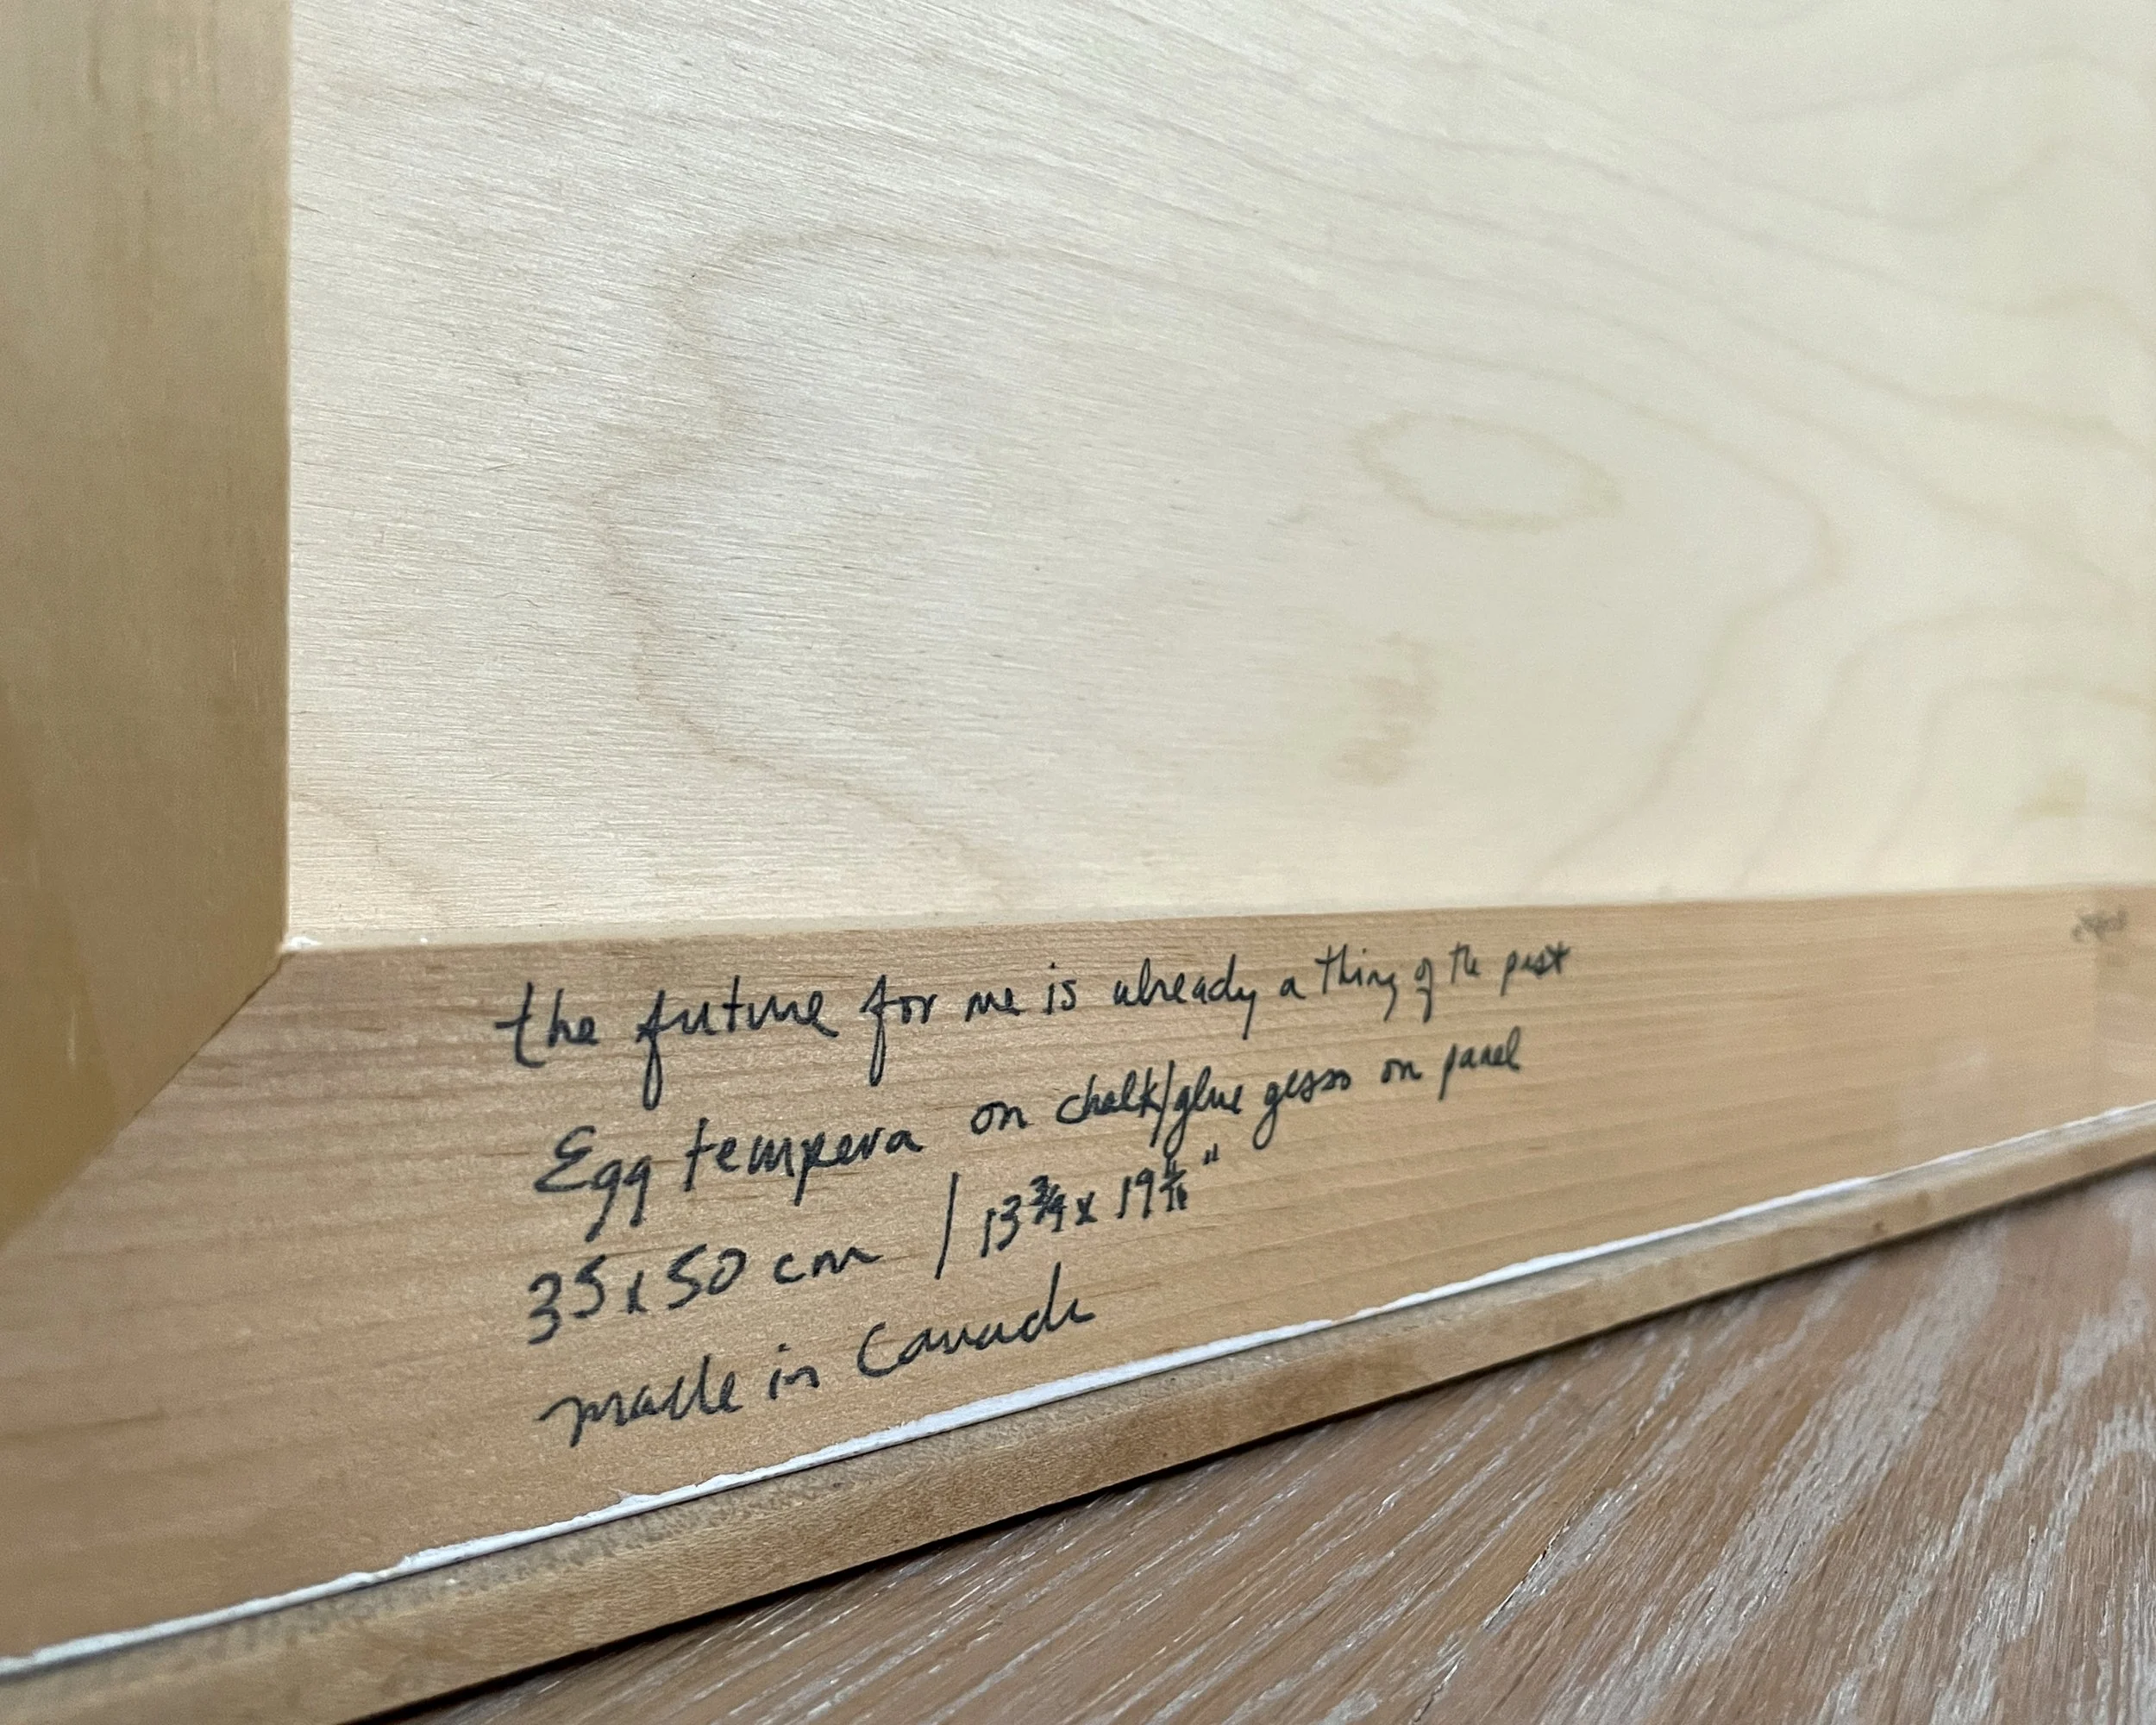 the future for me is already a thing of the past
Egg tempera on chalk/glue gesso on panel
35x50 cm / 13 3/4 x 19 "
made in Canada